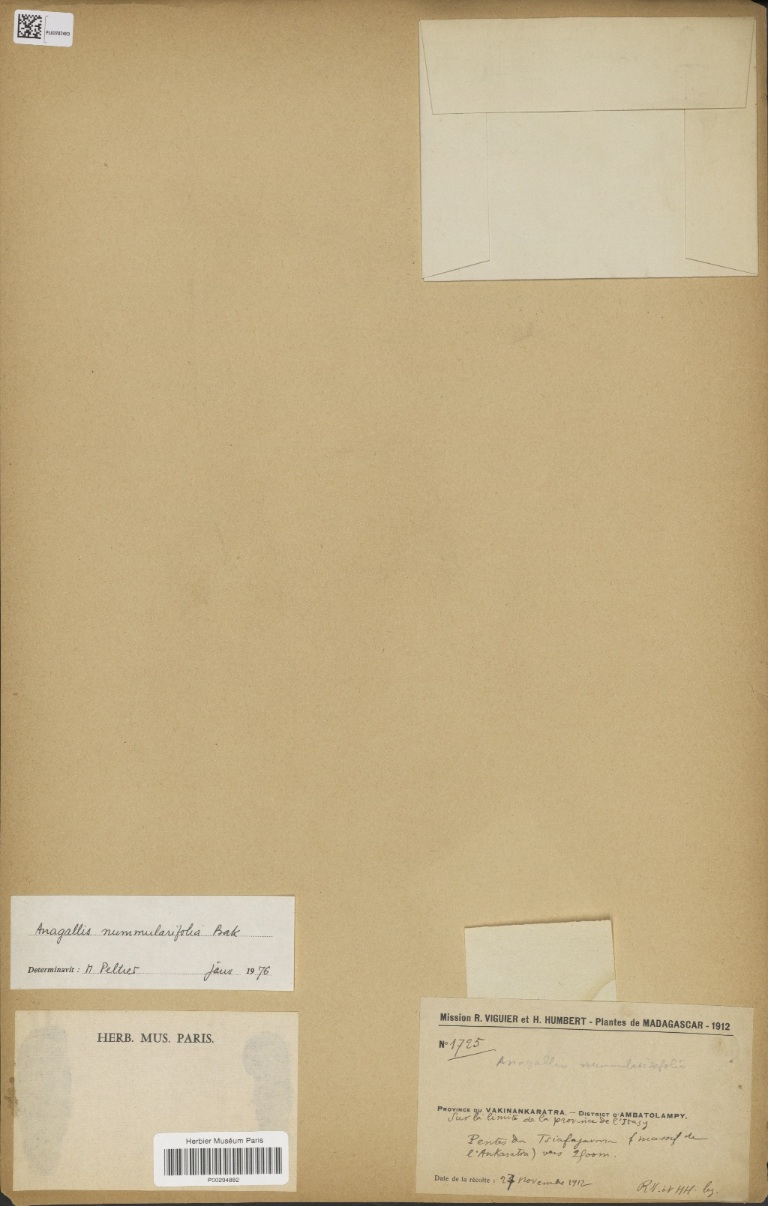 Anagallis nummularifolia Bak
Determinavit : M Peltier janv 1976
HERB. MUS. PARIS.
Herbier Muséum Paris
P00294882
Mission R. VIGUIER et H. HUMBERT - Plantes de MADAGASCAR - 1912
N° 1725
Anagallis nummularifolia
PROVINCE DU VAKINANKARATRA. — DISTRICT D'AMBATOLAMPY.
Sur la limite de la province de l'Itasy
Pentes du Tsiafajavona (massif de
l'Ankaratra) vers
Date de la récolte : Novembre 1912
R.V. et HH. leg.